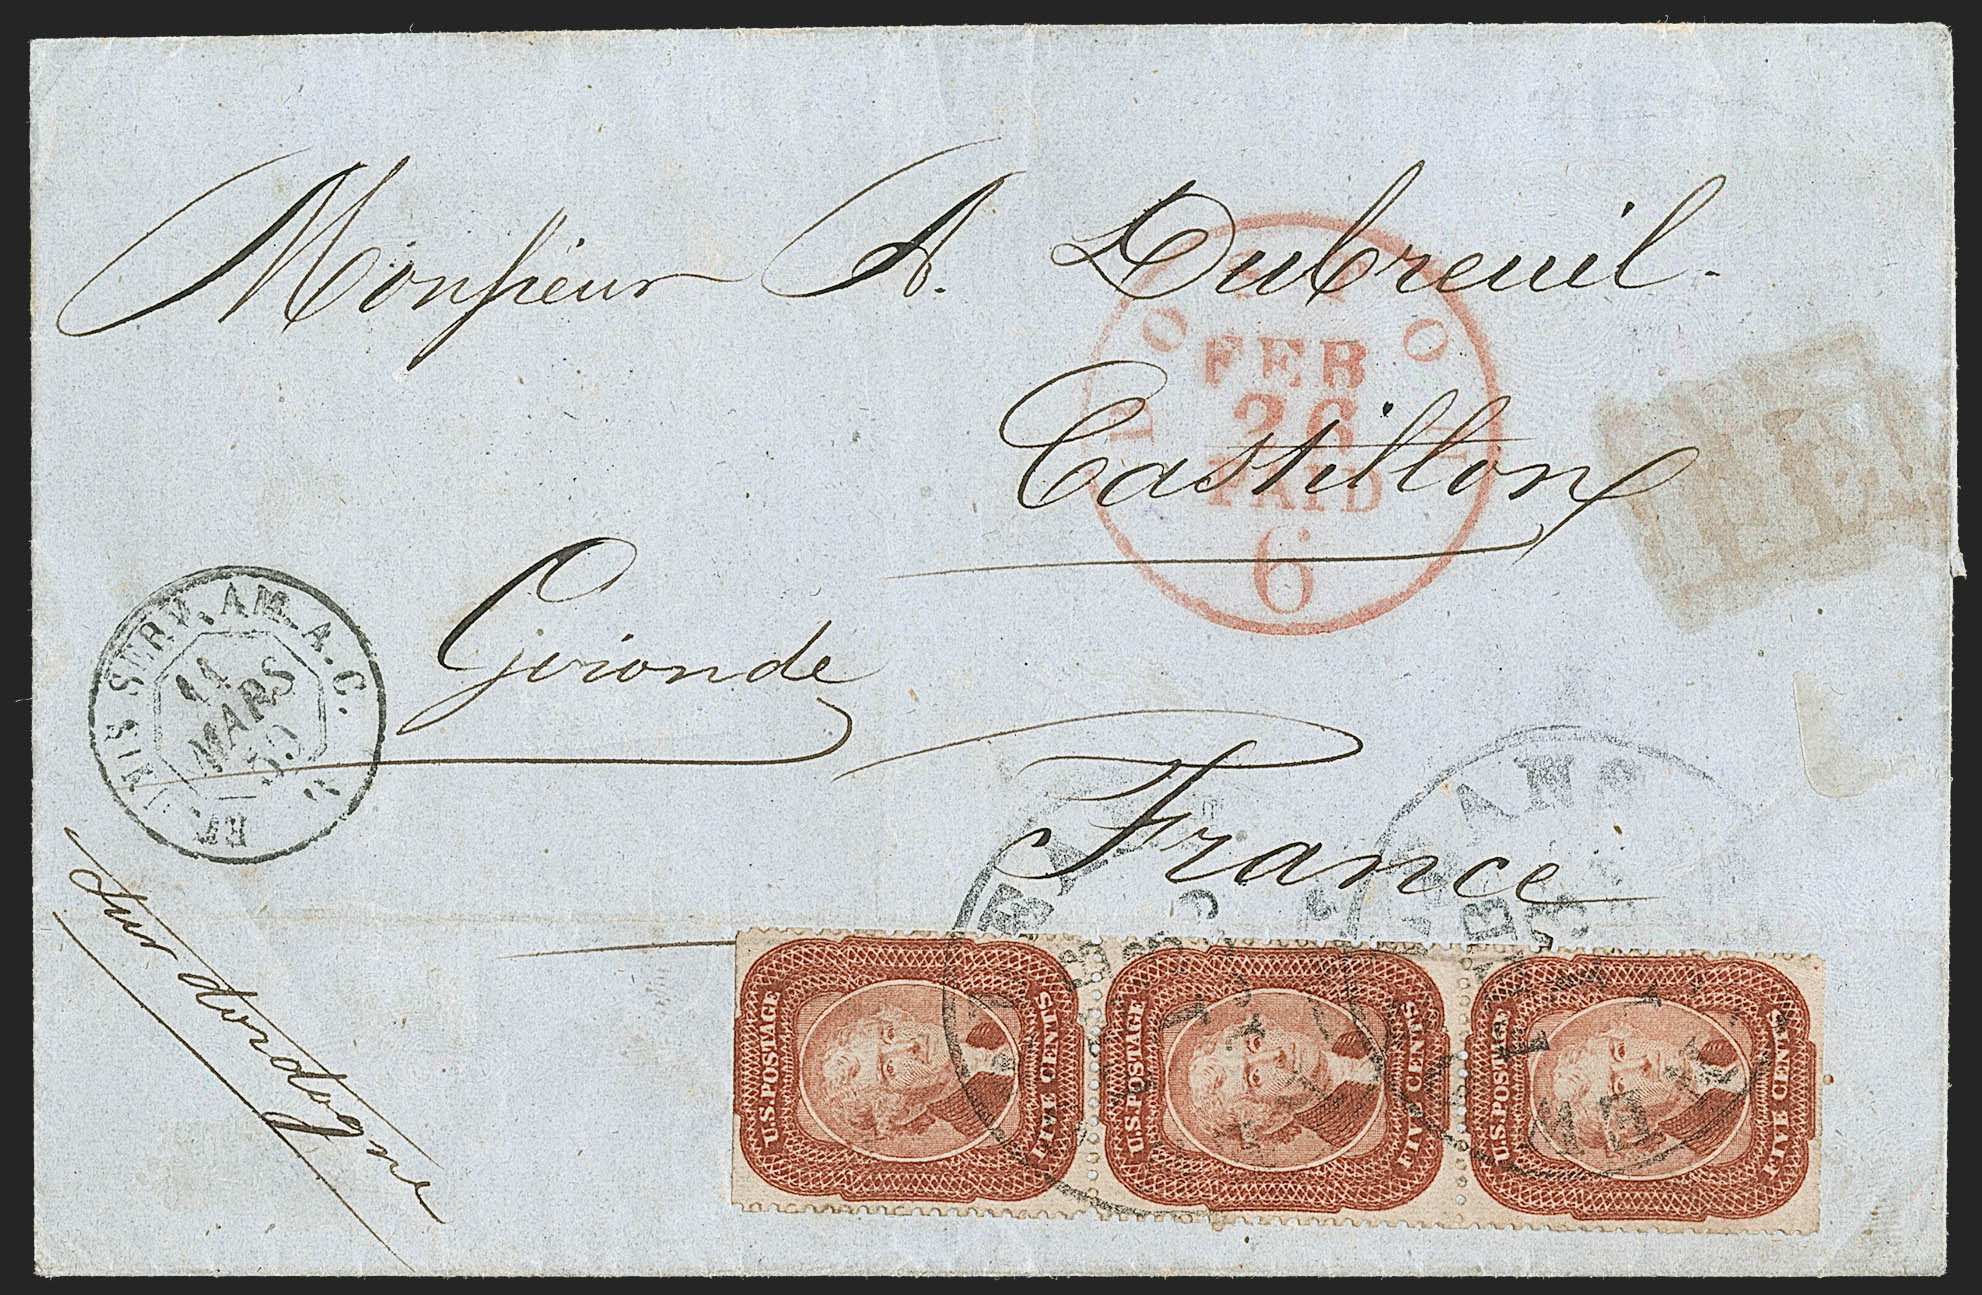 Monsieur A. Dubreuil.
BOSTON
FEB
26
PAID
6
Castillon
Gironde
France
SERV. AM. A. C.
11
MARS
59
sur dordogne
U.S. POSTAGE
FIVE CENTS
U.S. POSTAGE
FIVE CENTS
U.S. POSTAGE
FIVE CENTS